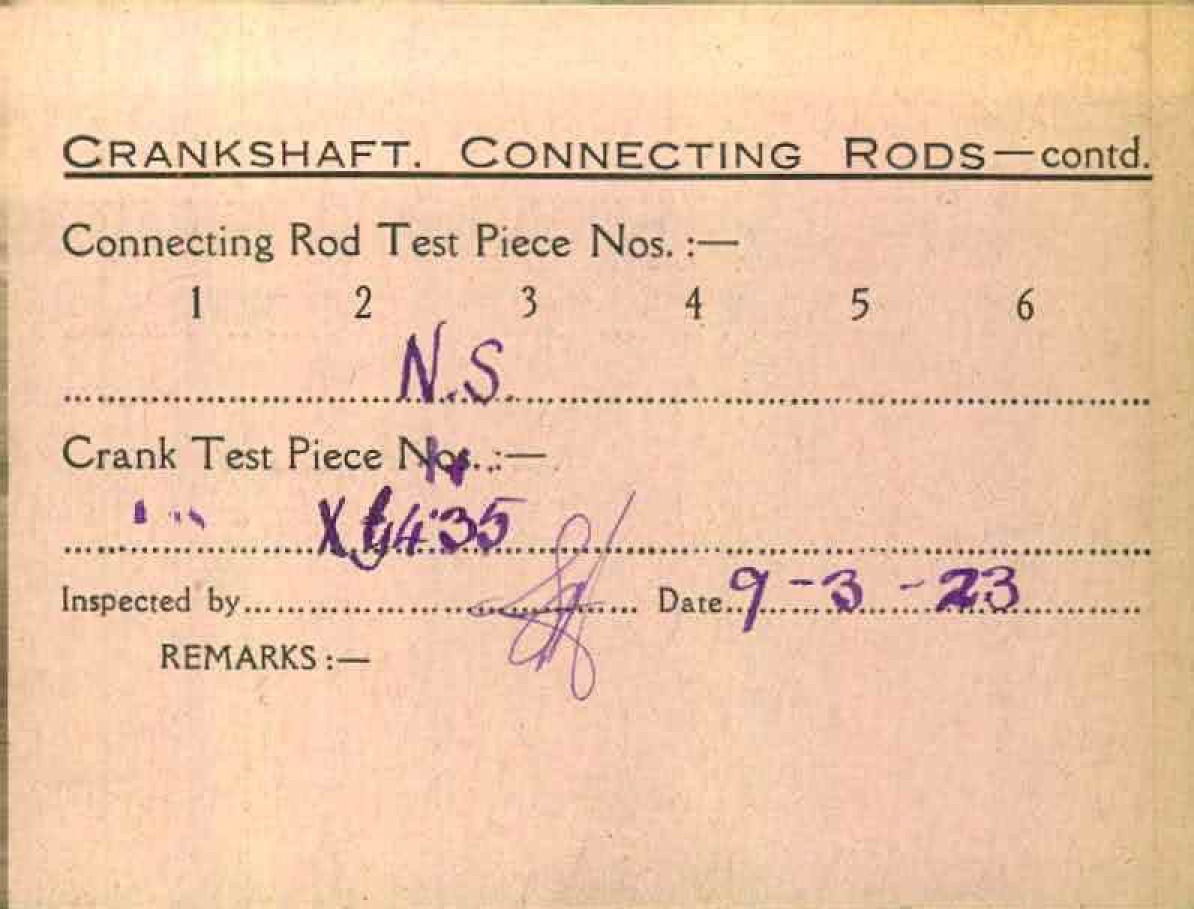 CRANKSHAFT. CONNECTING RODS—contd.
Connecting Rod Test Piece Nos. :—
1 2 3 4 5 6
N.S.
Crank Test Piece Nos. :—
Inspected by Date 9-3-23
REMARKS :—